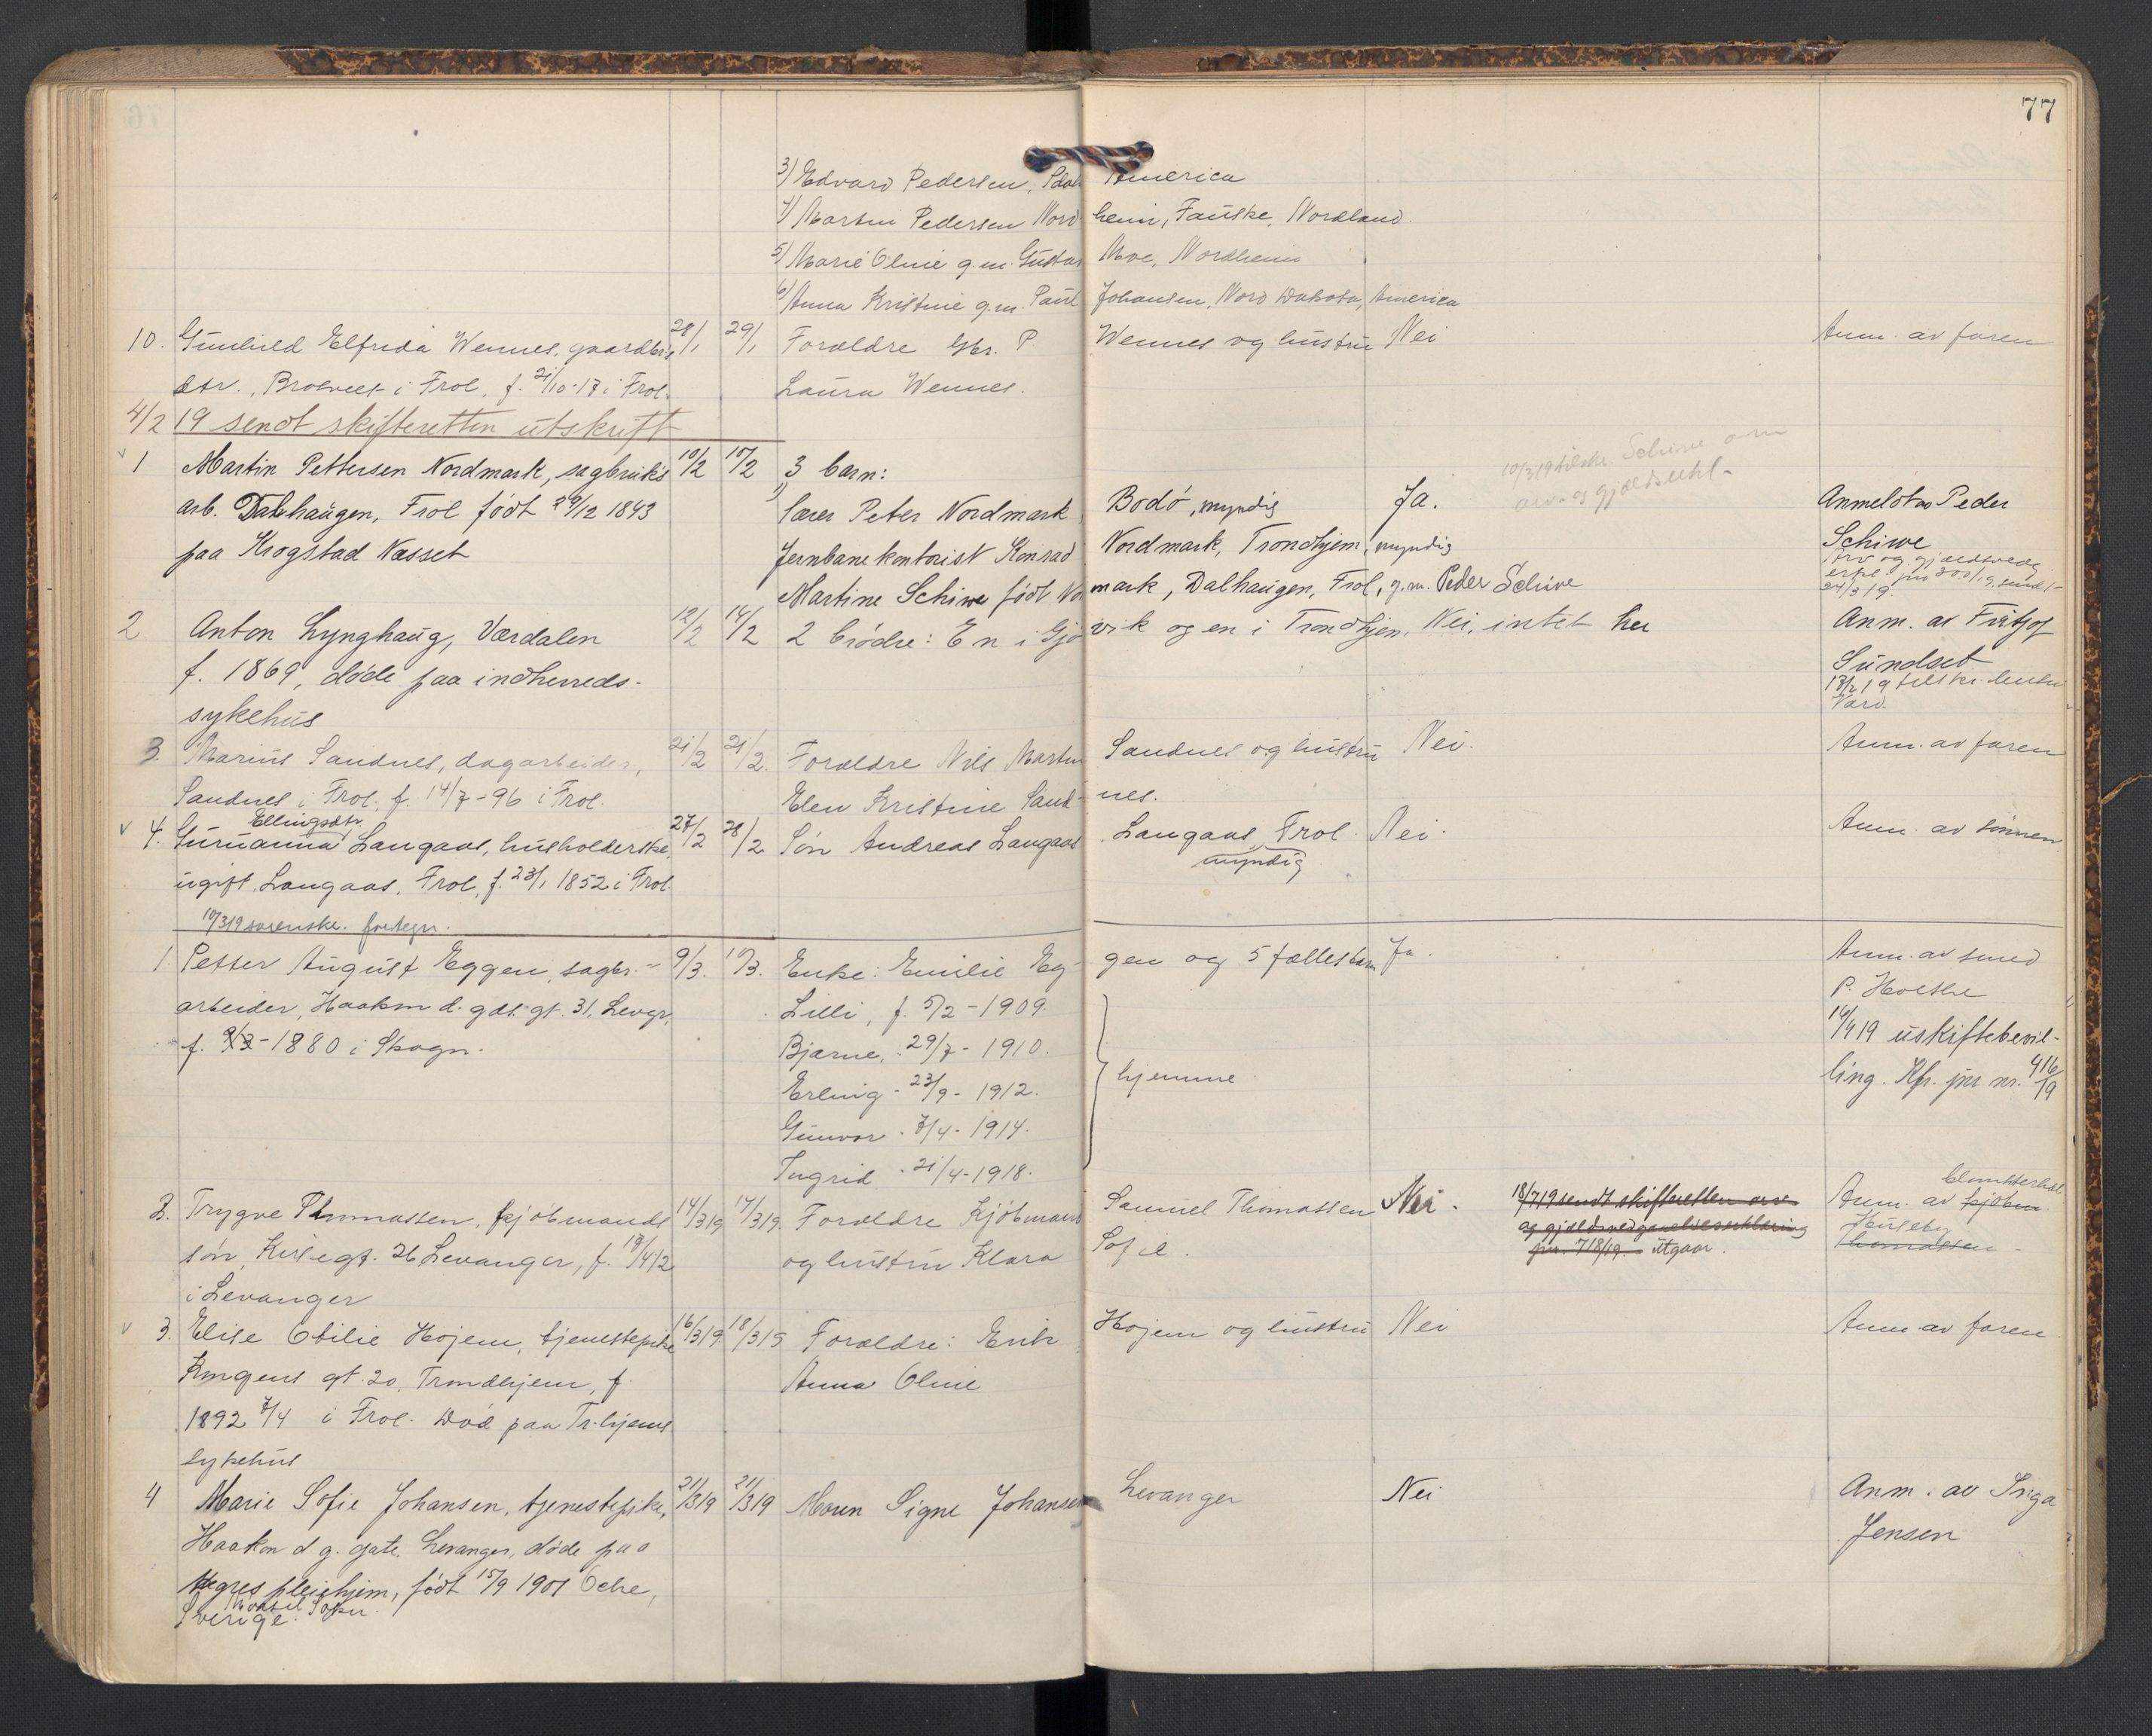 77
3) Edvard Pedersen, America
4) Martin Pedersen Nordheim, Fauske, Nordland.
5) Marie Oline g.m. Gustav Moe, Nordheim
6) Anna Kristine g.m. Paul Johansen, Nord Dakota, America
10. Gunhild Elfrida Wennes, gaardbr.s 28/1 29/1 Forældre Gbr. P. Wennes og hustru Nei Anm. av faren
dtr., i Frol, f. 21/10-17 i Frol. Laura Wennes.
4/2 19 sendt skifteretten utskrift
1 Martin Pettersen Nordmark, sagbruks 10/2 10/2 3 barn: 10/3 19 tilskr. Schive om
arb. Dalhaugen, Frol født 29/12 1843 1) lærer Peter Nordmark Bodø, myndig Ja. arv- og gjældserkl- Anmeldt av Peder
paa Krogstad Næsset Jernbanekontorist Konrad Nordmark, Trondhjem, myndig Schiwe
Martine Schiwe født Nordmark, Dalhaugen, Frol, g.m. Peder Schive
Arv og gjældsvedg.
erkl. jnr 300/19 sendt
24/3 19.
2 Anton Lynghaug, Værdalen 12/2 14/2 2 brødre: En i Gjøvik og en i Trondhjem. Nei, intet her Anm. av Fritjof
f. 1869, døde paa indherreds- Sundset
sykehus 13/2 19 tilskr.
3. Marius Sandnes, dagarbeider, 21/2 21/2. Forældre Nils Martin Sandnes og hustru Nei. Anm. av faren
Sandnes i Frol. f. 14/7-96 i Frol. Elen Kristine Sandnes.
Ellingsdtr.
4. Guruanna Langaas, husholderske, 27/2 28/2 Søn Andreas Langaas Langaas, Frol. Nei. Anm. av sønnen
ugift, Langaas, Frol, f. 23/1 1852 i Frol. myndig
10/3 19 sorenskr. fortegn.
1. Petter August Eggen, sagbr.- 9/3. 10/3. Enke: Emilie Eggen og 5 fællesbarn Ja. Anm. av smed
arbeider, Haakon d. gds gt. 31, Levgr, Lilli, f. 5/2-1909. P. Holthe
f. 9/3-1880 i Skogn. Bjarne, - 29/7-1910. 14/4 19 uskiftebevil-
Erling - 23/9-1912. hjemme ling. Kfr. jnr nr. 416/19
Gunvor - 7/4-1914.
Ingrid - 21/4-1918.
2. Trygve Thomassen, kjøbmands 14/3 19 17/3 19. Forældre Kjøbmand Samuel Thomassen Nei. 18/7 19 sendt skifteretten arv- Anm. av kjøbm.
søn, Kirkegt. 26 Levanger, f. og hustru Klara Sofie. og gjældsvedgaaelseserklæring Huseby
i Levanger jnr. 718/19. utgaar. Thomassen
3. Elise Otilie Hojem, tjenestepike 16/3 19. 18/3 19 Forældre: Erik Hojem og hustru Nei Anm. av faren.
Kongens gt. 20, Trondhjem, f. Anna Oline
1892 7/4 i Frol. Død paa Tr.hjems
sykehus
4 Marie Sofie Johansen, tjenestepike, 21/3 19 21/3 19 Moren Signe Johansen Levanger Nei Anm. av Inga
Haakon d g. gate, Levanger, døde paa Jensen
pleiehjem, født 15/9 1901
Sverige.